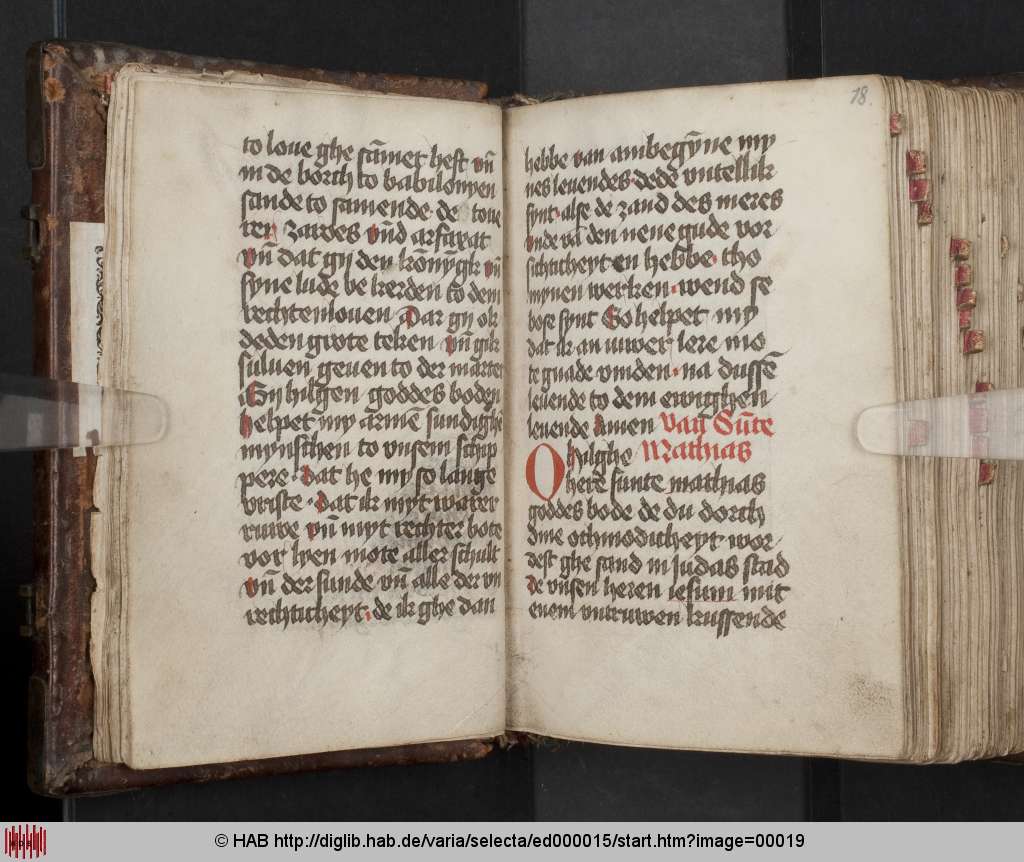 to loue ghe sam̄et heft vn̄
in de borch to babilonyen
sande to samende de toue
rer zaroes vn̄d arfaxat
vn̄ dat gy den kōnyḡk vn̄
syne lude be kerden to dem
rechten louen Dar gy ok
deden grote teken vn̄ gik
suluen geuen to der marter
Gy hilgen goddes boden
helpet my armē sundighē
mynschen to vnsem schip
pere dat he my so lange
vriste dat ik myt warer
ruwe vn̄ myt rechter bote
vor lyen mote aller schult
vn̄ der sunde vn̄ alle der vn
rechticheyt de ik ghe dan
18.
hebbe van ambegȳne my
nes leuendes dede vntellik
synt alse de zand des meres
vnde vā den nene gude vor
sichticheyt en hebbe tho
mynen werken wend se
bose synt So helpet my
dat ik an iuwer lere mo
te gnade vinden na dussē
leuende to dem ewighen
leuende Amen Van Sūte
Mathias
O hilghe
here sunte mathias
goddes bode de du dorch
dine othmodicheyt wor
dest ghe sand in Judas stad
de vnsen heren iesum mit
enem vntruwen kussende
© HAB http://diglib.hab.de/varia/selecta/ed000015/start.htm?image=00019